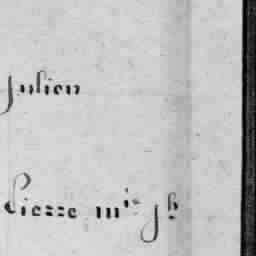 Julien
Pierre mis jh